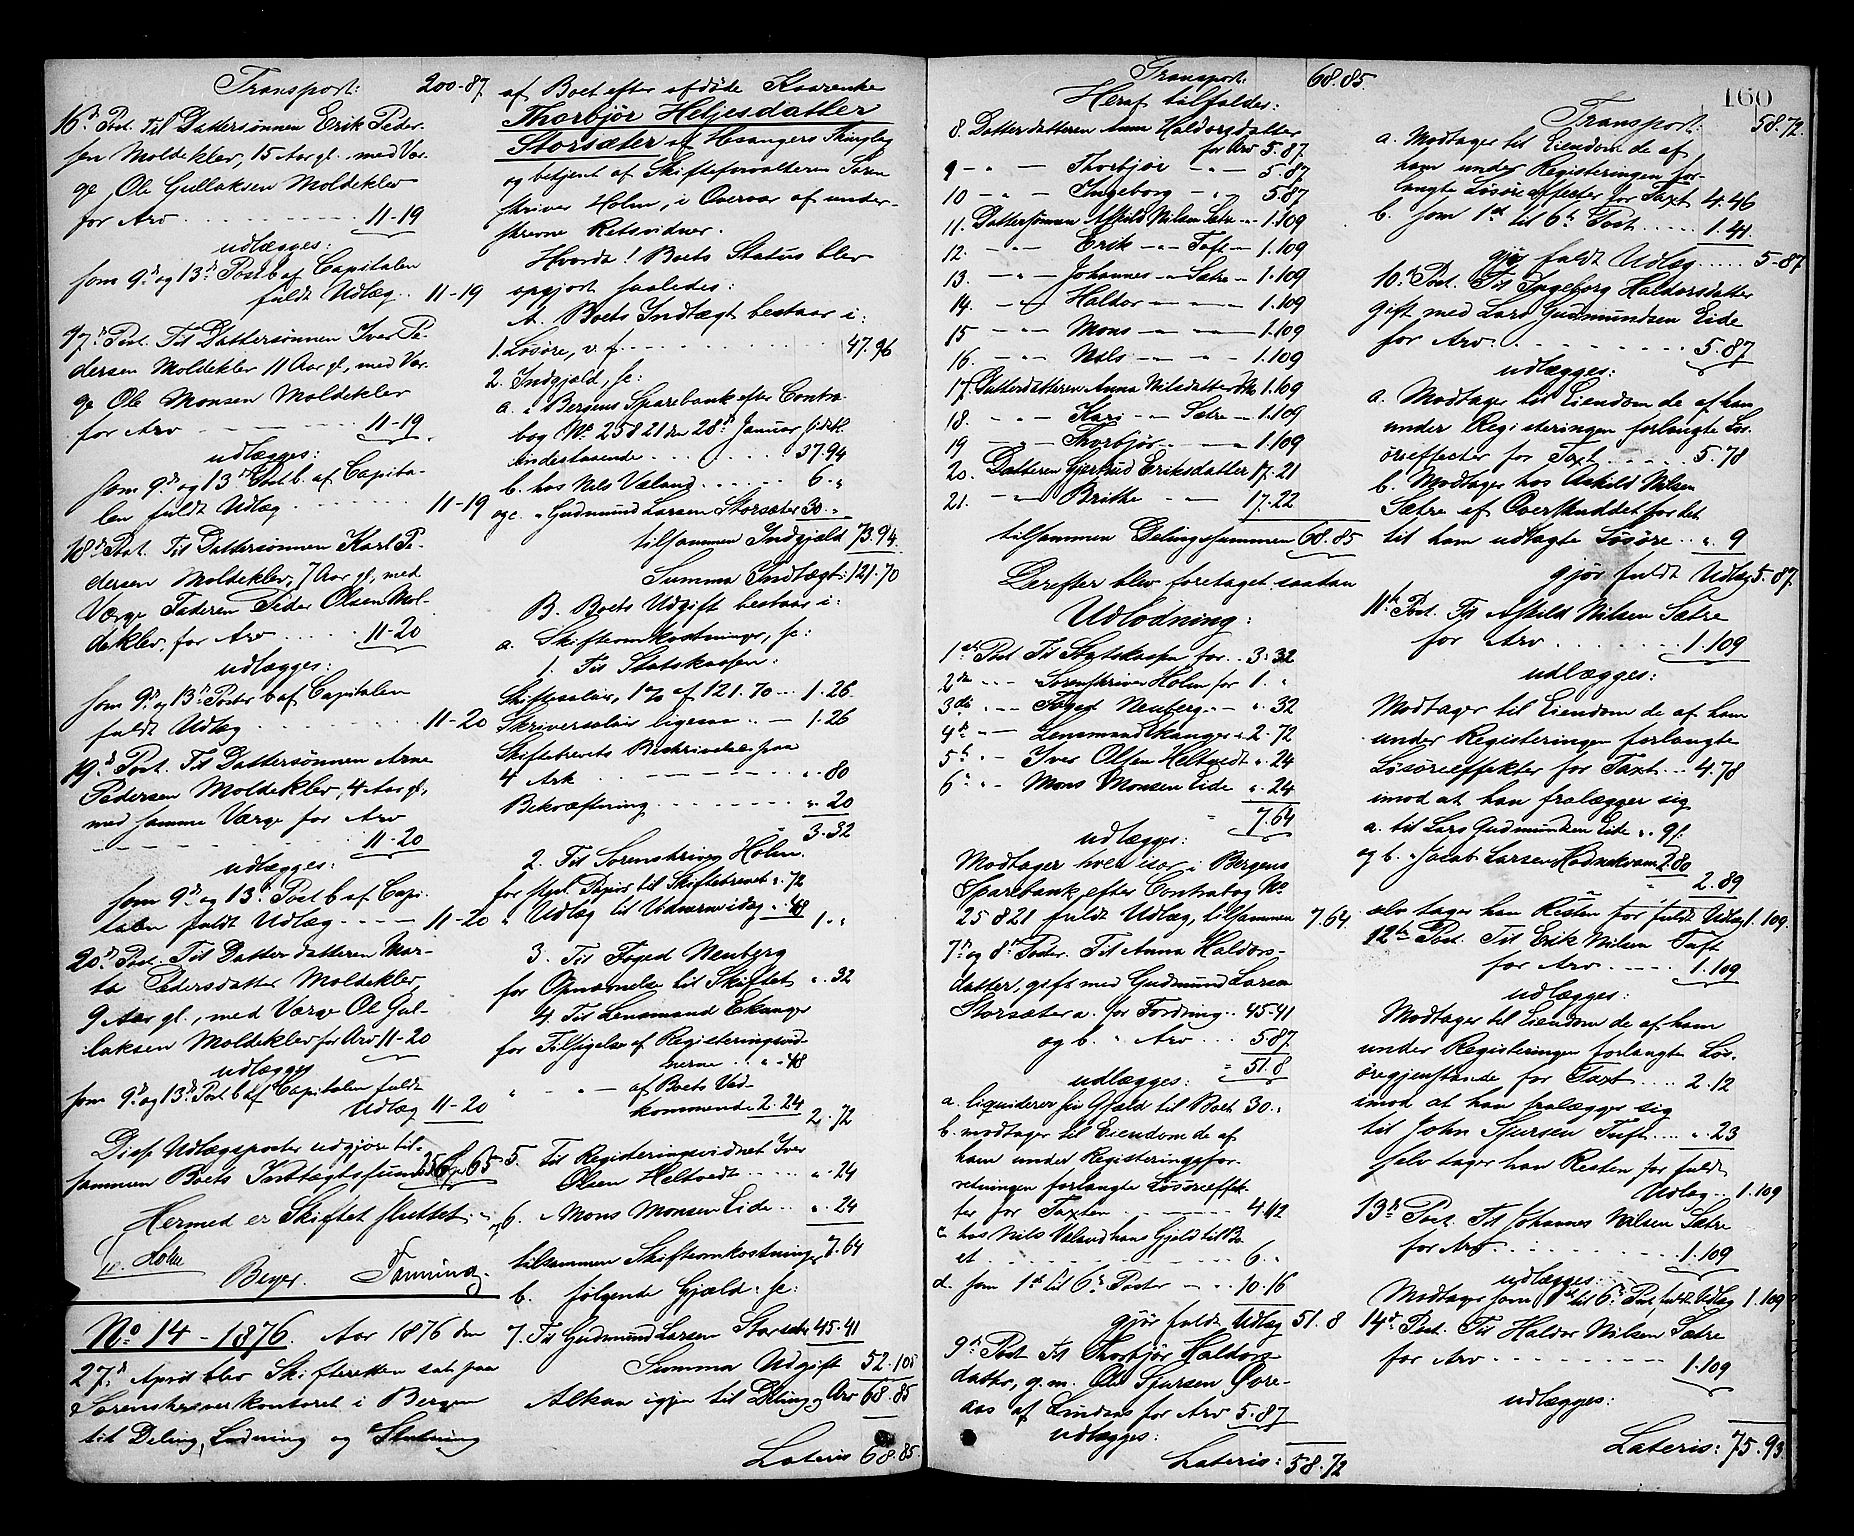 Transport: 200-87.
16d Post. Til Dattersønnen Erik Peder-
sen Moldeklev, 15 Aar gl. med Vær-
ge Ole Gullaksen Moldeklev
for Arv 11-19
udlægges:
som 9d og 13d Post b af Capitalen
fuldt Udlæg 11-19
17d Post. Til Dattersønnen Iver Pe-
dersen Moldeklev 11 Aar gl, med Vær-
ge Ole Monsen Moldeklev
for Arv 11-19
udlægges:
som 9d og 13d Post b. af Capita-
len fuldt Udlæg 11-19
18d Post. Til Dattersønnen Karl Pe-
dersen Moldeklev, 7 Aar gl, med
Værge Faderen Peder Olsen Mol-
deklev, for Arv 11-20
udlægges:
som 9d og 13d Poster b af Capitalen
fuldt Udlæg 11-20
19d Post. Til Dattersønnen Arne
Pedersen Moldeklev, 4 Aar gl,
med samme Værge for Arv
11-20
udlægges:
som 9d og 13d Post b af Capi-
talen fuldt Udlæg 11-20
20d Post. Til Datterdatteren Mar-
ta Pedersdatter Moldeklev,
9 Aar gl., med Værge Ole Gul-
laksen Moldeklev for Arv 11-20
udlægges
som 9d og 13d Post b af Capitalen fuldt
Udlæg 11-20
Disse Udlægsposter udgjøre til-
sammen Boets Indtægtssum 256-65
Hermed er Skiftet sluttet.
Holm
Beyer.
No 14 - 1876. Aar 1876 den
27d April blev Skifteretten sat paa
Sorenskriverkontoret i Bergen
til Deling, Lodning og Slutning
af Boet efter afdøde Kaarenke
Thorbjør Heljesdatter
Storsæter af Hosangers Thinglag
og betjent af Skifteforvalteren Soren
skriver Holm, i Overvær af under-
skrevne Retsvidner.
Hvorda! Boets Status blev
opgjort saaledes:
A. Boets Indtægt bestaar i:
1. Løsøre, v. f. 47.96
2. Indgjæld, se:
a. i Bergens Sparebank efter Contra
bog No 25821 den 28d Januar sidstl.
indestaaende 37.94
b. hos Nils Væland 6."
og c. " Gudmund Larsen Storsæter 30."
tilsammen Indgjæld 73.94
Summa Indtægt: 121.70
B. Boets Udgift bestaar i:
a. Skifteomkostninger, se:
1. Til Statskassen:
Skiftesalair, 1% af 121.70 1.26
Skriversalair ligesaa 1.26
Skiftebrevets Beskrivelse paa
4 Ark ". 80
Bekræftning ". 20
3.32
2. Til Sorenskriver Holm.
for stpl. Papir til Skiftebrevet ". 72
" Udlæg til Vidnernes ". 48
1."
3. Til Foged Neuberg
for Opnævnelse til Skiftet ". 32
4 Til Lensmand Ekanger
for Tilsigelse af Registeringsvid-
nerne ". 48
" " af Boets Ved-
kommende 2.24
2.72
5. Til Registeringsvidnet Iver
Olsen Heltvedt ". 24
og 6. " Mons Monsen Eide ". 24
tilsammen Skifteomkostninger 7.64
b. følgende Gjæld: se:
7. Til Gudmund Larsen Storsæter 45.41
Summa Udgift 52.105
Altsaa igjen til Deling Arv 68.85
Lateris 68.85.
Transport: 68.85.
Heraf tilfaldes:
8. Datterdatteren Anna Haldorsdatter
for Arv 5.87.
9 " Thorbjør " 5.87
10 " Ingeborg " 5.87
11. Dattersønnen Askild Nilsen Sætre " 1.109
12. " Erik " Tuft 1.109
13. " Johannes " Sætre 1.109
14. " Haldor " 1.109
15 " Mons " 1.109
16. " Nils " 1.109
17. Datterdatteren Anna Nilsdatter 1.109
18. " Kari " Sætre 1.109
19 " Thorbjør " 1.109
20. Datteren Gjertrud Eriksdatter 17.21
21. " Brithe " 17.22
tilsammen Delingssummen 68.85
Derefter blev foretaget saadan
Udlodning:
1ste Post Til Statskassen for 3.32
2den " Sorenskriver Holm for 1."
3die " Foged Neuberg " ". 32
4de " Lensmand Ekanger " 2.72
5te " Iver Olsen Heltvedt ". 24
6te " Mons Monsen Eide ". 24
7.64
udlægges:
Modtager hver især i Bergens
Sparebank efter Contrabog No
25821 fuldt Udlæg, tilsammen 7.64.
7d og 8d Poster. Til Anna Haldors-
datter, gift med Gudmund Larsen
Storsæter a. for Fordring 45-41
og b. " Arv 5.87.
51.8
udlægges:
a. liquiderer sin Gjæld til Boet 30."
b. modtager til Eiendom de af
ham under Registeringsfor-
retningen forlangte Løsøreeffek
ter for Taxten 4.112
c hos Nils Væland hans Gjæld til Bo
et 6."
d. som 1st til 6d Poster 10.16
gjør fuldt Udlæg 51.8
9d Post Til Thorbjør Haldors-
datter, g. m. Ole Sjursen Øvre-
aas af Lindaas for Arv 5.87
udlægges:
Lateris: 58.72
160
Transport: 58.72.
a. Modtager til Eiendom de af
ham under Registeringen for-
langte Løsøreeffecter for Taxt 4.46
b. som 1st til 6d Post 1.41.
gjør fuldt Udlæg 5-87.
10d Post. Til Ingeborg Haldorsdatter
gift med Lars Gudmundsen Eide
for Arv 5.87
udlægges:
a. Modtager til Eiendom de af ham
under Registeringen forlangte Løs-
øreeffecter for Taxt 5.78
b. Modtager hos Askild Nilsen
Sætre af Overskuddet for det
til ham udlagte Løsøre ". 9
gjør fuldt Udlæg 5.87.
11te Post. Til Askild Nilsen Sætre
for Arv 1.109
udlægges:
Modtager til Eiendom de af ham
under Registeringen forlangte
Løsøreeffekter for Taxt 4.78
imod at han fralægger sig
a. til Lars Gudmundsen Eide ". 9.
og b. " Jacob Larsen Hodnekvam 2.80
2.89
selv tager han Resten for fuldt Udlæg 1.109.
12te Post. Til Erik Nilsen Tuft
for Arv 1.109
udlægges:
Modtager til Eiendom de af ham
under Registeringen forlangte Løs-
øregjenstande for Taxt 2.12
imod at han fralægger sig
til John Sjursen Tuft ". 23
selv tager han Resten for fuldt
Udlæg 1.109
13d Post. Til Johannes Nilsen Sætre
for Arv 1.109
udlægges:
Modtager som 1st til 6d Post fuldt Udlæg 1.109
14d Post. Til Haldor Nilsen Sætre
for Arv 1.109
udlægges:
Lateris: 75.93.